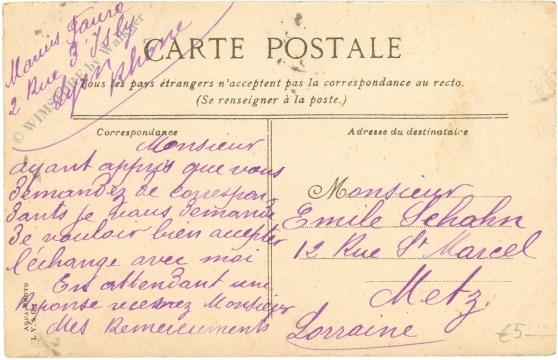 Marius Faure
2 Rue d'Isly
Lyon Rhone
© WIMSTORE by Wallner
CARTE POSTALE
Tous les pays étrangers n'acceptent pas la correspondance au recto.
(Se renseigner à la poste.)
Correspondance
Adresse du destinataire
Monsieur
ayant appris que vous
demandez de correspon-
dants je vous demande
de vouloir bien accepter
l'échange avec moi
En attendant une
Reponse recevez Monsieur
Mes Remerciements
Monsieur
Emile Schahn
12 Rue St Marcel
Metz
Lorraine
AQUA PHOTO
€5-